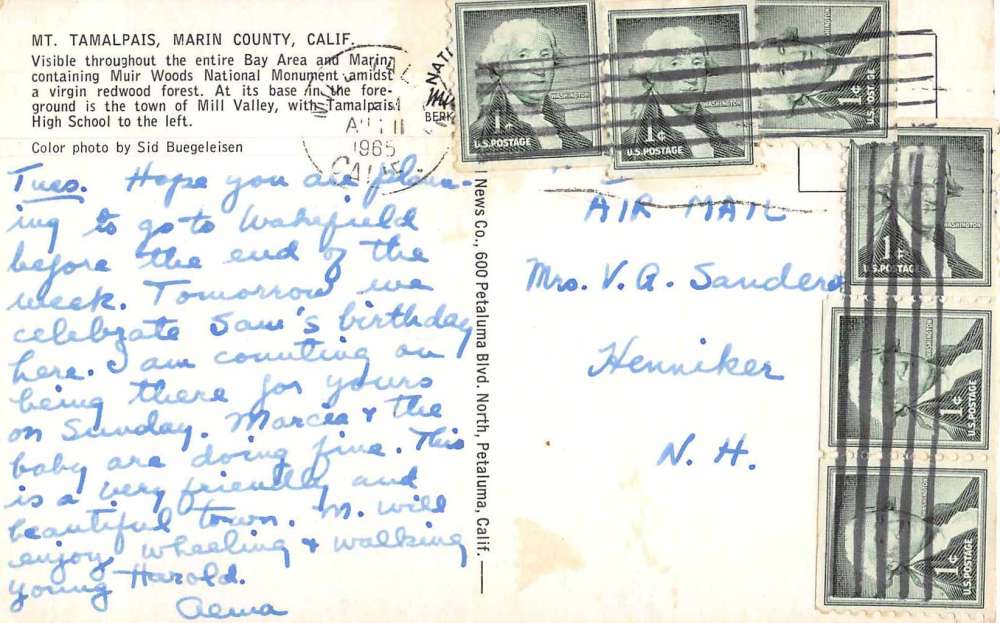 MT. TAMALPAIS, MARIN COUNTY, CALIF.
Visible throughout the entire Bay Area and Marin,
containing Muir Woods National Monument amidst
a virgin redwood forest. At its base in the fore-
ground is the town of Mill Valley, with Tamalpais
High School to the left.
Color photo by Sid Buegeleisen
1965
CALIF
NATI
BERK
Tues. Hope you are plann-
ing to go to Wakefield
before the end of the
week. Tomorrow we
celebrate Sam's birthday
here. I am counting on
being there for yours
on Sunday. Marcia & the
baby are doing fine. This
is a very friendly and
beautiful town. M. will
enjoy wheeling & walking
young Harold.
News Co., 600 Petaluma Blvd. North, Petaluma, Calif.
AIR MAIL
Mrs. V. A. Sanders
Henniker
N. H.
WASHINGTON
1¢
U.S. POSTAGE
WASHINGTON
1¢
U.S. POSTAGE
WASHINGTON
1¢
U.S. POSTAGE
WASHINGTON
1¢
U.S. POSTAGE
WASHINGTON
1¢
U.S. POSTAGE
WASHINGTON
1¢
U.S. POSTAGE